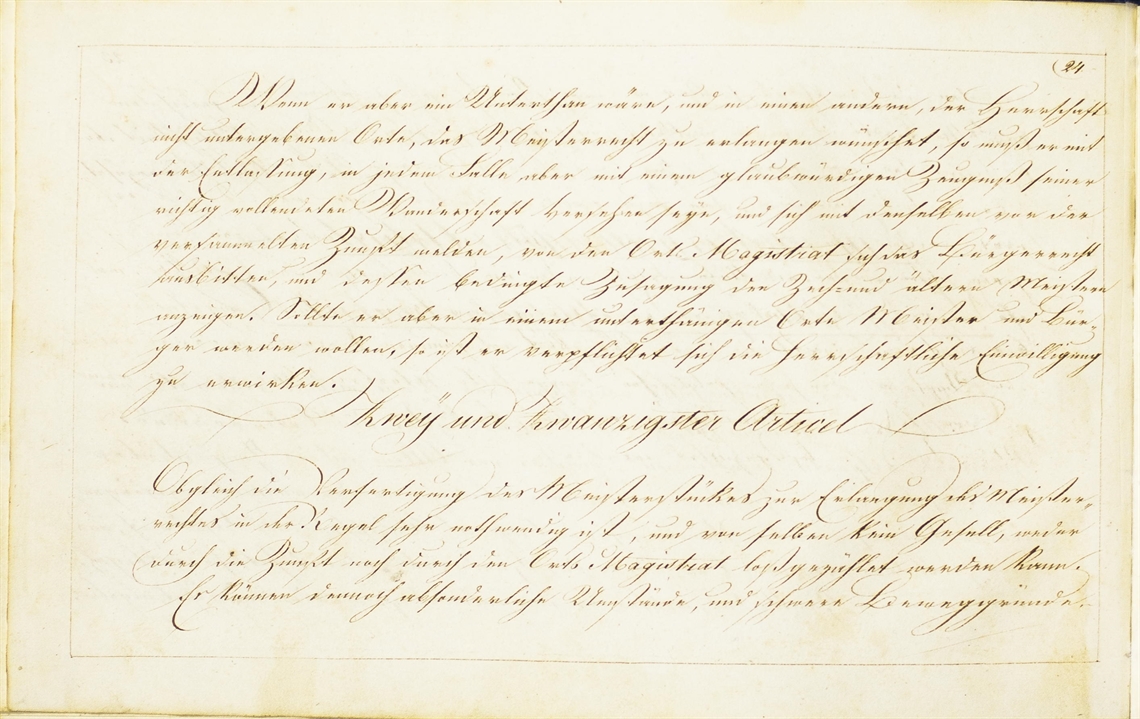 (24
Wenn er aber ein Unterthan wäre, und in einen andern, der Herrschaft
nicht untergebenen Orte, das Meisterrecht zu erlangen wünschet, so muß er mit
der Entlassung, in jedem Falle aber mit einem glaubwürdigen Zeugniß seiner
richtig vollendeten Wanderschaft versehen seyn, und sich mit denselben vor der
versammelten Zunft melden, von den Orts Magistrat sich das Bürgerrecht
ausbitten, und dessen bedingte Zusagung den Zech= und ältern Meistern
anzeigen. Sollte er aber in einem unterthänigen Orte Meister und Bür-
ger werden wollen, so ist er verpflichtet sich die herrschaftliche Einwilligung
zu erwirken.
Zweÿ und Zwanzigster Articel
Obgleich die Verfertigung des Meisterstückes zur Erlangung des Meister-
rechtes in der Regel sehr nothwendig ist, und von selben kein Gesell, weder
durch die Zunft noch durch den Orts Magistrat loßgezählet werden kann.
Es können dennoch absonderliche Umstände, und schwere Beweggründe